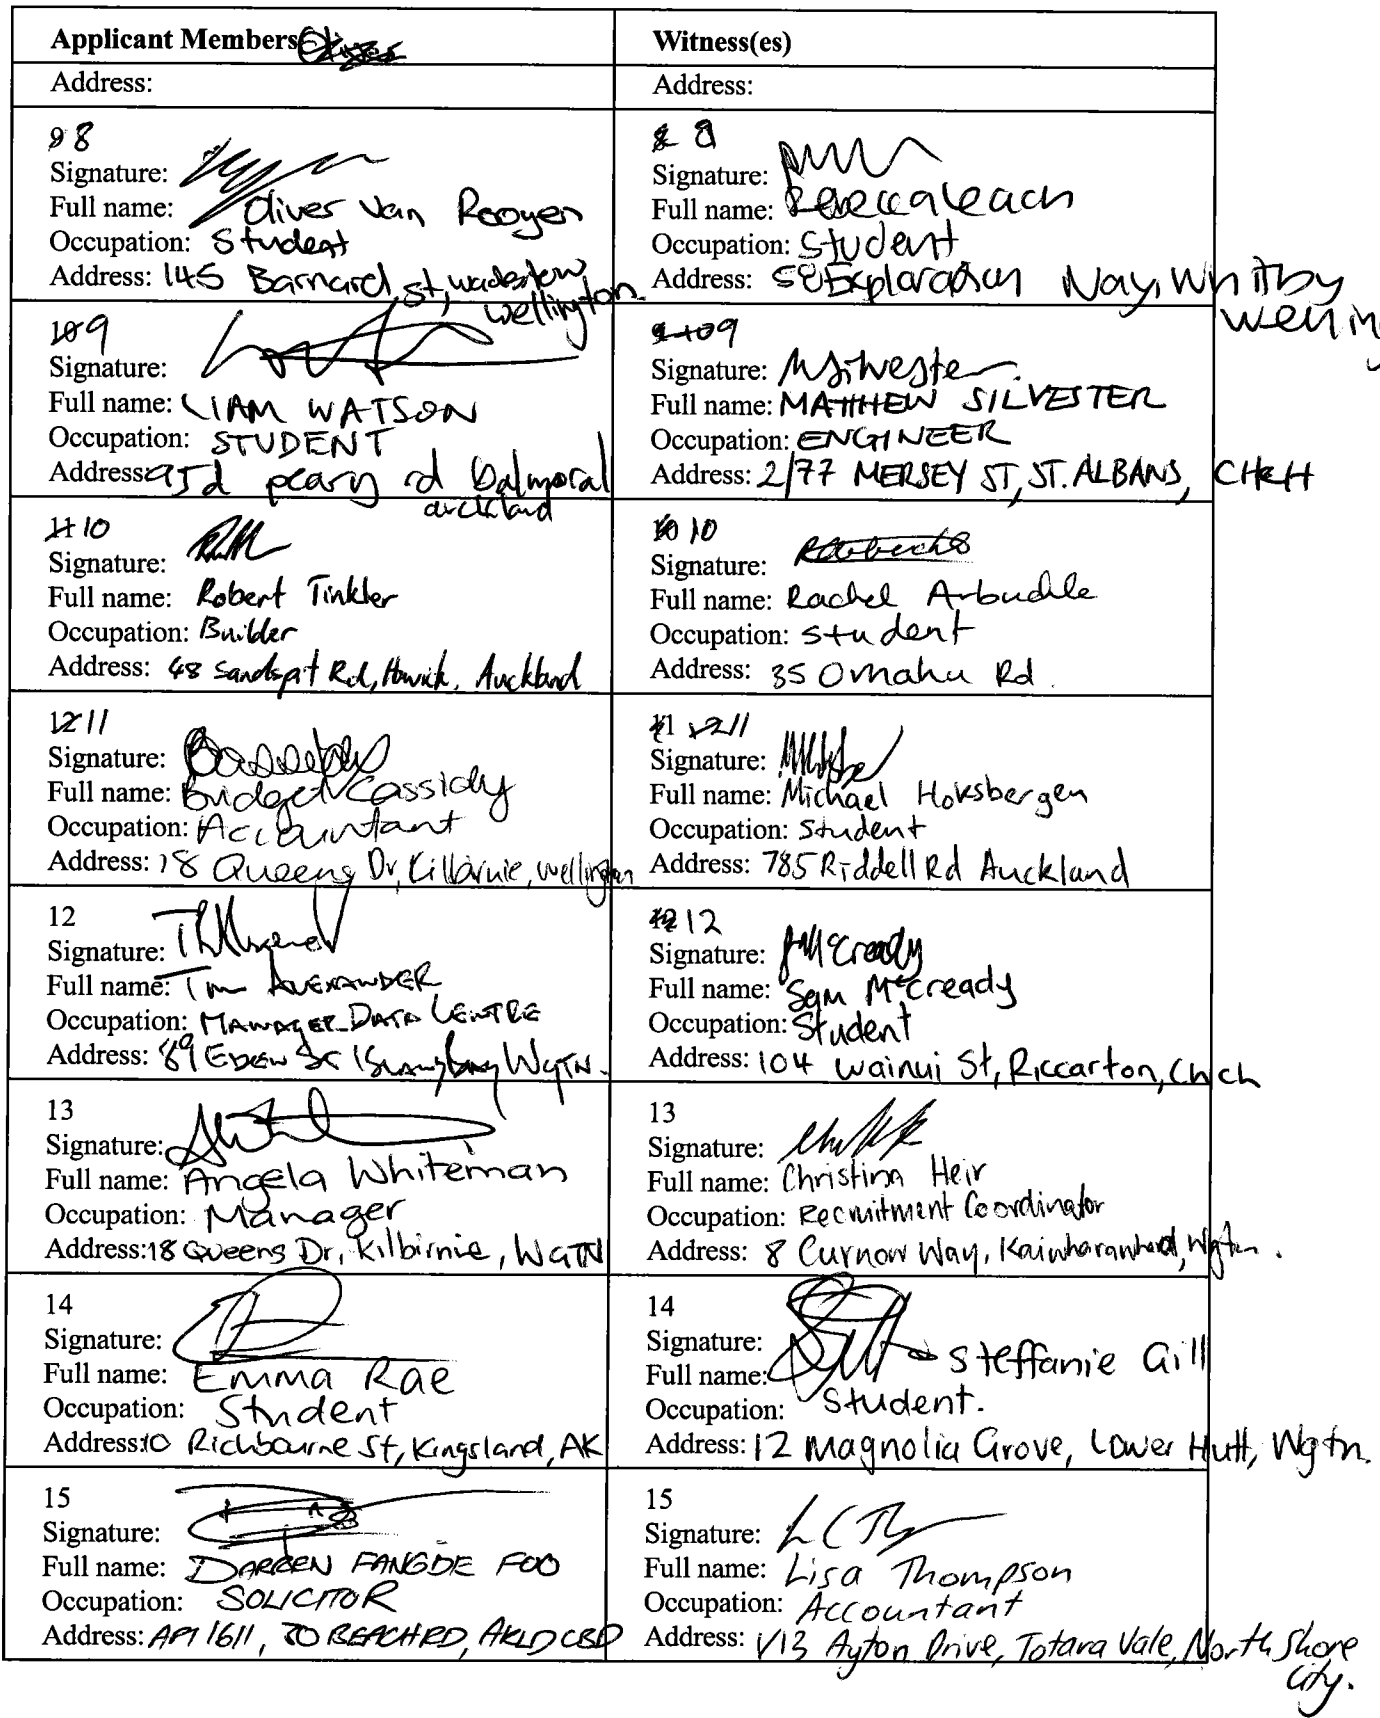 Applicant Members
Witness(es)
Address:
Address:
8
Signature:
Full name: Oliver Van Rooyen
Occupation: Student
Address: 145 Barnard st, wadestown
wellington.
8
Signature:
Full name: Rebecca Leach
Occupation: Student
Address: 58 Exploration Way, Whitby
9
Signature:
Full name: LIAM WATSON
Occupation: STUDENT
Address: 95d peary rd balmoral
auckland
9
Signature: MSilvester
Full name: MATTHEW SILVESTER
Occupation: ENGINEER
Address: 2/77 MERSEY ST, ST. ALBANS, CHCH
10
Signature:
Full name: Robert Tinkler
Occupation: Builder
Address: 48 Sandspit Rd, Howick, Auckland
10
Signature:
Full name: Rachel Arbuckle
Occupation: student
Address: 35 Omahu Rd.
11
Signature:
Full name: Bridget Cassidy
Occupation: Accountant
Address: 18 Queens Dr, Kilbirnie, wellington
11
Signature:
Full name: Michael Hoksbergen
Occupation: Student
Address: 785 Riddell Rd Auckland
12
Signature:
Full name: Tim ALEXANDER
Occupation: MANAGER DATA CENTRE
Address: 89 EDEN ST Island bay WGTN.
12
Signature: McCready
Full name: Sam McCready
Occupation: Student
Address: 104 Wainui St, Riccarton, Chch
13
Signature:
Full name: Angela Whiteman
Occupation: Manager
Address: 18 Queens Dr, Kilbirnie, WGTN
13
Signature:
Full name: Christina Heir
Occupation: Recruitment Coordinator
Address: 8 Curnow Way, Wgtn.
14
Signature:
Full name: Emma Rae
Occupation: Student
Address: 10 Richbourne St, Kingsland, AK
14
Signature:
Full name: Steffanie Gill
Occupation: Student.
Address: 12 Magnolia Grove, Lower Hutt, Wgtn.
15
Signature:
Full name: DARREN FANGDE FOO
Occupation: SOLICITOR
Address: APT 1611, BEACH RD, AKLD CBD
15
Signature:
Full name: Lisa Thompson
Occupation: Accountant
Address: 1/13 Ayton Drive, Totara Vale, North Shore
City.